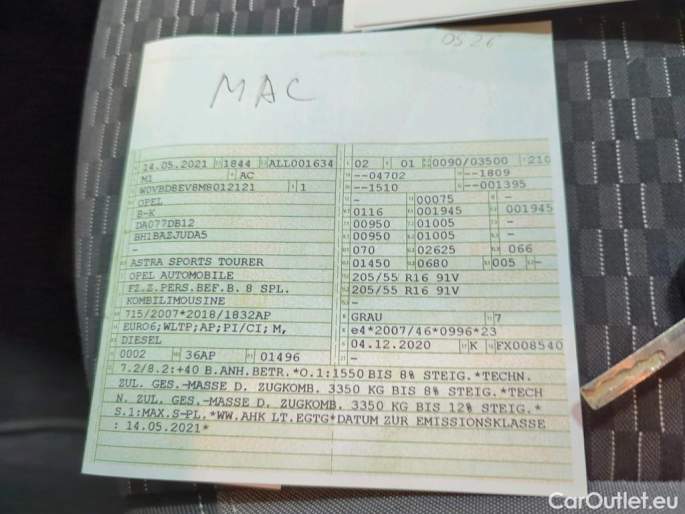 0526
MAC
14.05.2021 1844 ALL001634 02 01 0090/03500 210
M1 AC --04702 --1809
W0VBD8EV8M8012121 1 --1510 --001395
OPEL - 00075 -
B-K 0116 001945 001945
DA077DB12 00950 01005 -
BHIBAZJUDA5 00950 01005 -
- 070 02625 066
ASTRA SPORTS TOURER 01450 0680 005 -
OPEL AUTOMOBILE 205/55 R16 91V
FZ.Z.PERS.BEF.B. 8 SPL. 205/55 R16 91V
KOMBILIMOUSINE -
715/2007*2018/1832AP GRAU 7
EURO6;WLTP;AP;PI/CI; M, e4*2007/46*0996*23
DIESEL 04.12.2020 K FX008540
0002 36AP 01496 -
7.2/8.2:+40 B.ANH.BETR.*O.1:1550 BIS 8% STEIG.*TECHN.
ZUL. GES.-MASSE D. ZUGKOMB. 3350 KG BIS 8% STEIG.*TECH
N. ZUL. GES.-MASSE D. ZUGKOMB. 3350 KG BIS 12% STEIG.*
S.1:MAX.S-PL.*WW.AHK LT.EGTG*DATUM ZUR EMISSIONSKLASSE
: 14.05.2021*
CarOutlet.eu